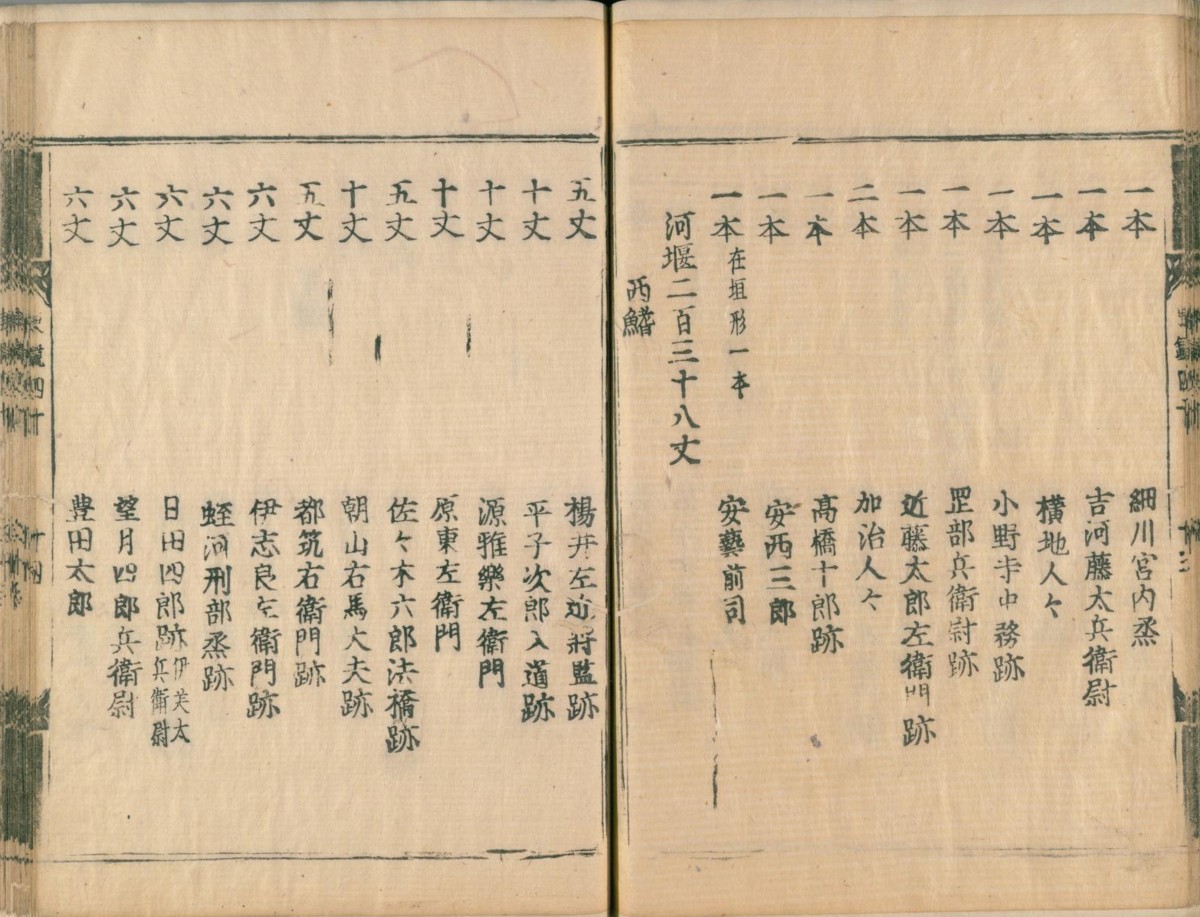 一本 細川宮内烝
一本 吉河藤太兵衛尉
一本 横地人々
一本 小野寺中務跡
一本 罡部兵衛尉跡
一本 近藤太郎左衛門跡
二本 加治人々
一本 高橋十郎跡
一本 安西三郎
一本在垣形一本 安藝前司
河堰二百三十八丈
西鰭
五丈 楊井左近将監跡
十丈 平子次郎入道跡
十丈 源雅樂左衛門
十丈 原東左衛門
五丈 佐々木六郎法橋跡
十丈 朝山右馬大夫跡
五丈 都筑右衛門跡
六丈 伊志良左衛門跡
六丈 蛭河刑部烝跡
六丈 日田四郎跡伊美太兵衛尉
六丈 望月四郎兵衛尉
六丈 豊田太郎